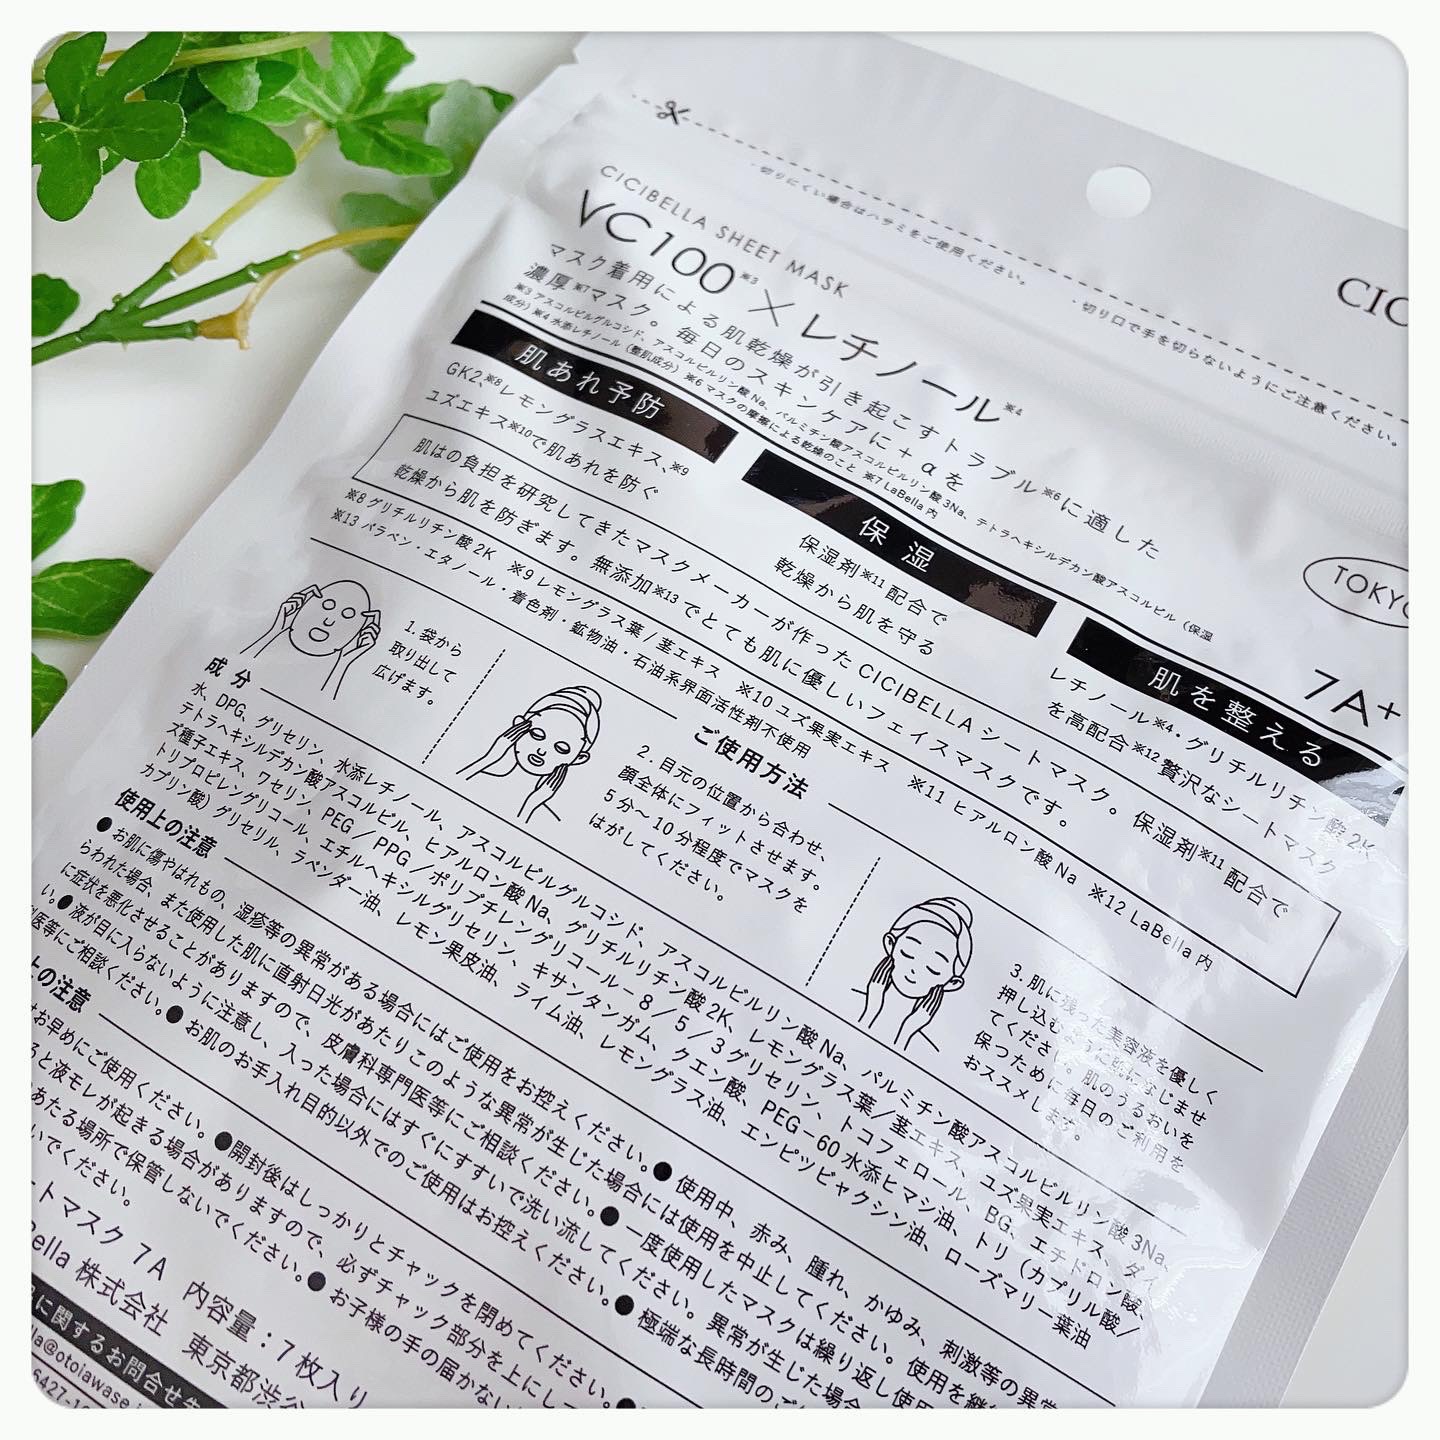 切りにくい場合はハサミをご使用ください。
・切り口で手を切らないようにご注意ください。
CICIBELLA SHEET MASK
VC100※3×レチノール※4
マスク着用による肌乾燥が引き起こすトラブル※6に適した
濃厚※7マスク。毎日のスキンケアに+αを
※3 アスコルビルグルコシド、アスコルビルリン酸Na、パルミチン酸アスコルビルリン酸3Na、テトラヘキシルデカン酸アスコルビル（保湿
成分）※4 水添レチノール（整肌成分）※6 マスクの摩擦による乾燥のこと ※7 LaBella内
TOKYO
7A+
肌あれ予防
GK2、※8レモングラスエキス、※9
ユズエキス※10で肌あれを防ぐ
保湿
保湿剤※11配合で
乾燥から肌を守る
肌を整える
レチノール※4・グリチルリチン酸2K
を高配合※12贅沢なシートマスク
肌はの負担を研究してきたマスクメーカーが作ったCICIBELLAシートマスク。保湿剤※11配合で
乾燥から肌を防ぎます。無添加※13でとても肌に優しいフェイスマスクです。
※8 グリチルリチン酸2K ※9 レモングラス葉/茎エキス ※10 ユズ果実エキス ※11 ヒアルロン酸Na ※12 LaBella内
※13 パラベン・エタノール・着色剤・鉱物油・石油系界面活性剤不使用
ご使用方法
1.袋から
取り出して
広げます。
2.目元の位置から合わせ、
顔全体にフィットさせます。
5分〜10分程度でマスクを
はがしてください。
3.肌に残った美容液を優しく
押し込むように肌になじませ
てください。肌のうるおいを
保つために毎日のご利用を
おススメします。
成分
水、DPG、グリセリン、水添レチノール、アスコルビルグルコシド、アスコルビルリン酸Na、パルミチン酸アスコルビルリン酸3Na、
テトラヘキシルデカン酸アスコルビル、ヒアルロン酸Na、グリチルリチン酸2K、レモングラス葉/茎エキス、ユズ果実エキス、ダイ
ズ種子エキス、ワセリン、PEG/PPG/ポリブチレングリコール-8/5/3グリセリン、トコフェロール、BG、エチドロン酸、
トリプロピレングリコール、エチルヘキシルグリセリン、キサンタンガム、クエン酸、PEG-60水添ヒマシ油、トリ（カプリル酸/
カプリン酸）グリセリル、ラベンダー油、レモン果皮油、ライム油、レモングラス油、エンピツビャクシン油、ローズマリー葉油
使用上の注意
●お肌に傷やはれもの、湿疹等の異常がある場合にはご使用をお控えください。●使用中、赤み、腫れ、かゆみ、刺激等の異常
らわれた場合、また使用した肌に直射日光があたりこのような異常が生じた場合には使用を中止してください。使用を継
に症状を悪化させることがありますので、皮膚科専門医等にご相談ください。●一度使用したマスクは繰り返し使用
い。●液が目に入らないように注意し、入った場合にはすぐにすすいで洗い流してください。異常が生じた場合
医等にご相談ください。●お肌のお手入れ目的以外でのご使用はお控えください。●極端な長時間のご
上の注意
お早めにご使用ください。●開封後はしっかりとチャックを閉めてください。
ると液モレが起きる場合がありますので、必ずチャック部分を上にし
あたる場所で保管しないでください。●お子様の手の届かない
いでください。
ートマスク 7A 内容量：7枚入り
Bella株式会社 東京都渋谷
に関するお問合せ
la@otoiawase